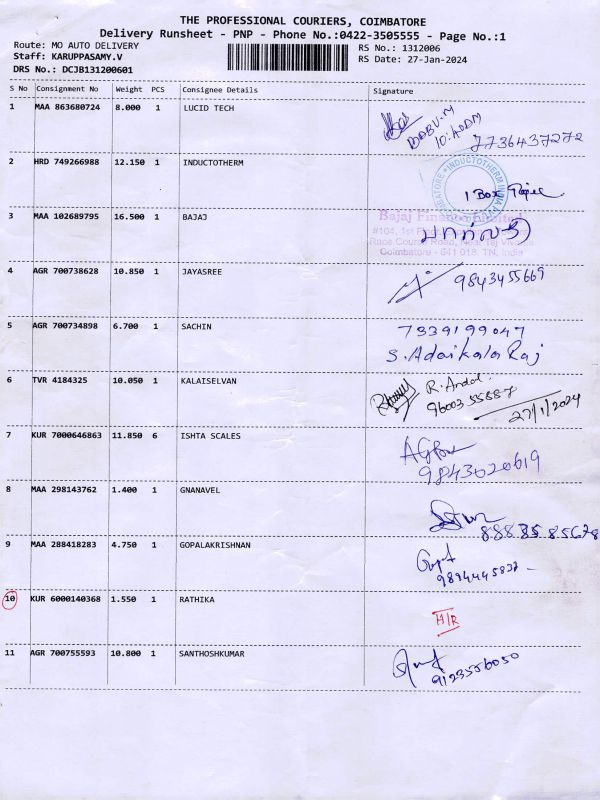 THE PROFESSIONAL COURIERS, COIMBATORE
Delivery Runsheet - PNP - Phone No.:0422-3505555 - Page No.:1
Route: MO AUTO DELIVERY
Staff: KARUPPASAMY.V
DRS No.: DCJB131200601
RS No.: 1312006
RS Date: 27-Jan-2024
S No Consignment No Weight PCS Consignee Details Signature
1 MAA 863680724 8.000 1 LUCID TECH
BABU.M
10:A00M
7736437272
2 HRD 749266988 12.150 1 INDUCTOTHERM
INDUCTOTHERM INDIA
1 Box
3 MAA 102689795 16.500 1 BAJAJ
Bajaj Finance Limited
#104, 1st
Race Course Road,
Coimbatore - 641 018. TN, India
4 AGR 700738628 10.850 1 JAYASREE
9843455669
5 AGR 700734898 6.700 1 SACHIN
7339199047
S. Adaikala Raj
6 TVR 4184325 10.050 1 KALAISELVAN
R. Andal.
96003 55887
27/1/2024
7 KUR 7000646863 11.850 6 ISHTA SCALES
9843020619
8 MAA 298143762 1.400 1 GNANAVEL
888 35 85678
9 MAA 288418283 4.750 1 GOPALAKRISHNAN
9894445832
10 KUR 6000140368 1.550 1 RATHIKA
H/R
11 AGR 700755593 10.800 1 SANTHOSHKUMAR
9123556050